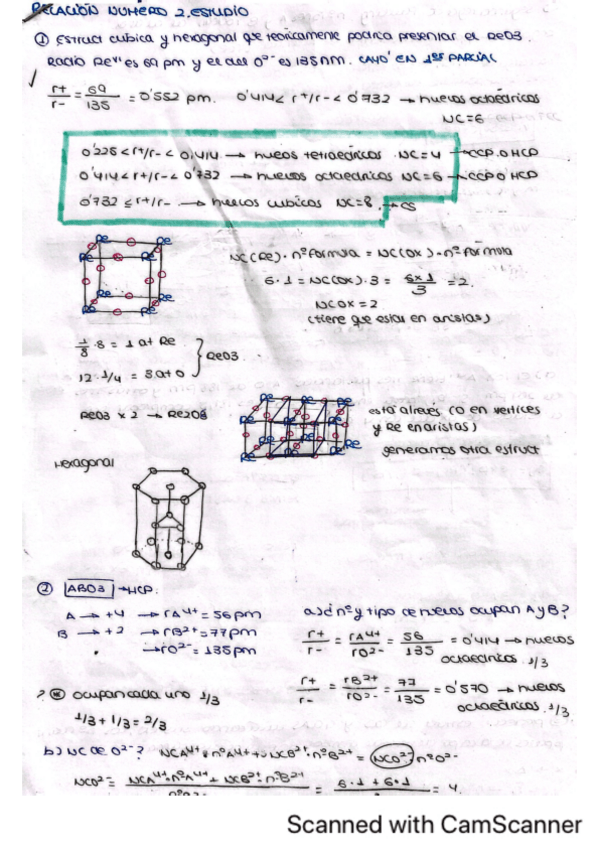 RELACIÓN NÚMERO 2. ESTUDIO
① Estruct cúbica y hexagonal que teóricamente podría presentar el ReO3.
Radio Re⁺⁶ es 69 pm y el del O²⁻ es 135nm. CAYÓ EN 1er PARCIAL
r+/r- = 69/135 = 0'552 pm. 0'414 < r+/r- < 0'732 → huecos octaédricos
NC=6
0'225 < r+/r- < 0,414 → huecos tetraédricos NC=4 → CCP o HCP
0'414 < r+/r- < 0'732 → huecos octaédricos NC=6 → CCP o HCP
0'732 ≤ r+/r- → huecos cúbicos NC=8 → CS
Re Re Re Re Re Re Re Re
NC(Re) · nº formula = NC(Ox) · nº formula
6·1 = NC(Ox)·3 = 6x1/3 = 2.
NC Ox = 2
(tiene que estar en aristas)
1/8 · 8 = 1 at Re
12 · 1/4 = 3 at O
} ReO3
ReO3 x 2 → Re2O6
Re Re Re Re Re Re Re Re
está al revés (O en vértices
y Re en aristas)
generamos otra estruct
Hexagonal
② ABO3 → HCP.
A → +4 → rA⁴⁺ = 56 pm
B → +2 → rB²⁺ = 77 pm
→ rO²⁻ = 135 pm
a) ¿nº y tipo de huecos ocupan A y B?
r+/r- = rA⁴⁺/rO²⁻ = 56/135 = 0'414 → huecos
octaédricos. 1/3
r+/r- = rB²⁺/rO²⁻ = 77/135 = 0'570 → huecos
octaédricos. 1/3
ocupan cada uno 1/3
1/3 + 1/3 = 2/3
b) NC de O²⁻? NCA⁴⁺ · nºA⁴⁺ + NCB²⁺ · nºB²⁺ = NCO²⁻ · nºO²⁻
NCO²⁻ = NCA⁴⁺ · nºA⁴⁺ + NCB²⁺ · nºB²⁺ / nºO²⁻ = 6·1 + 6·1 = 4.
Scanned with CamScanner